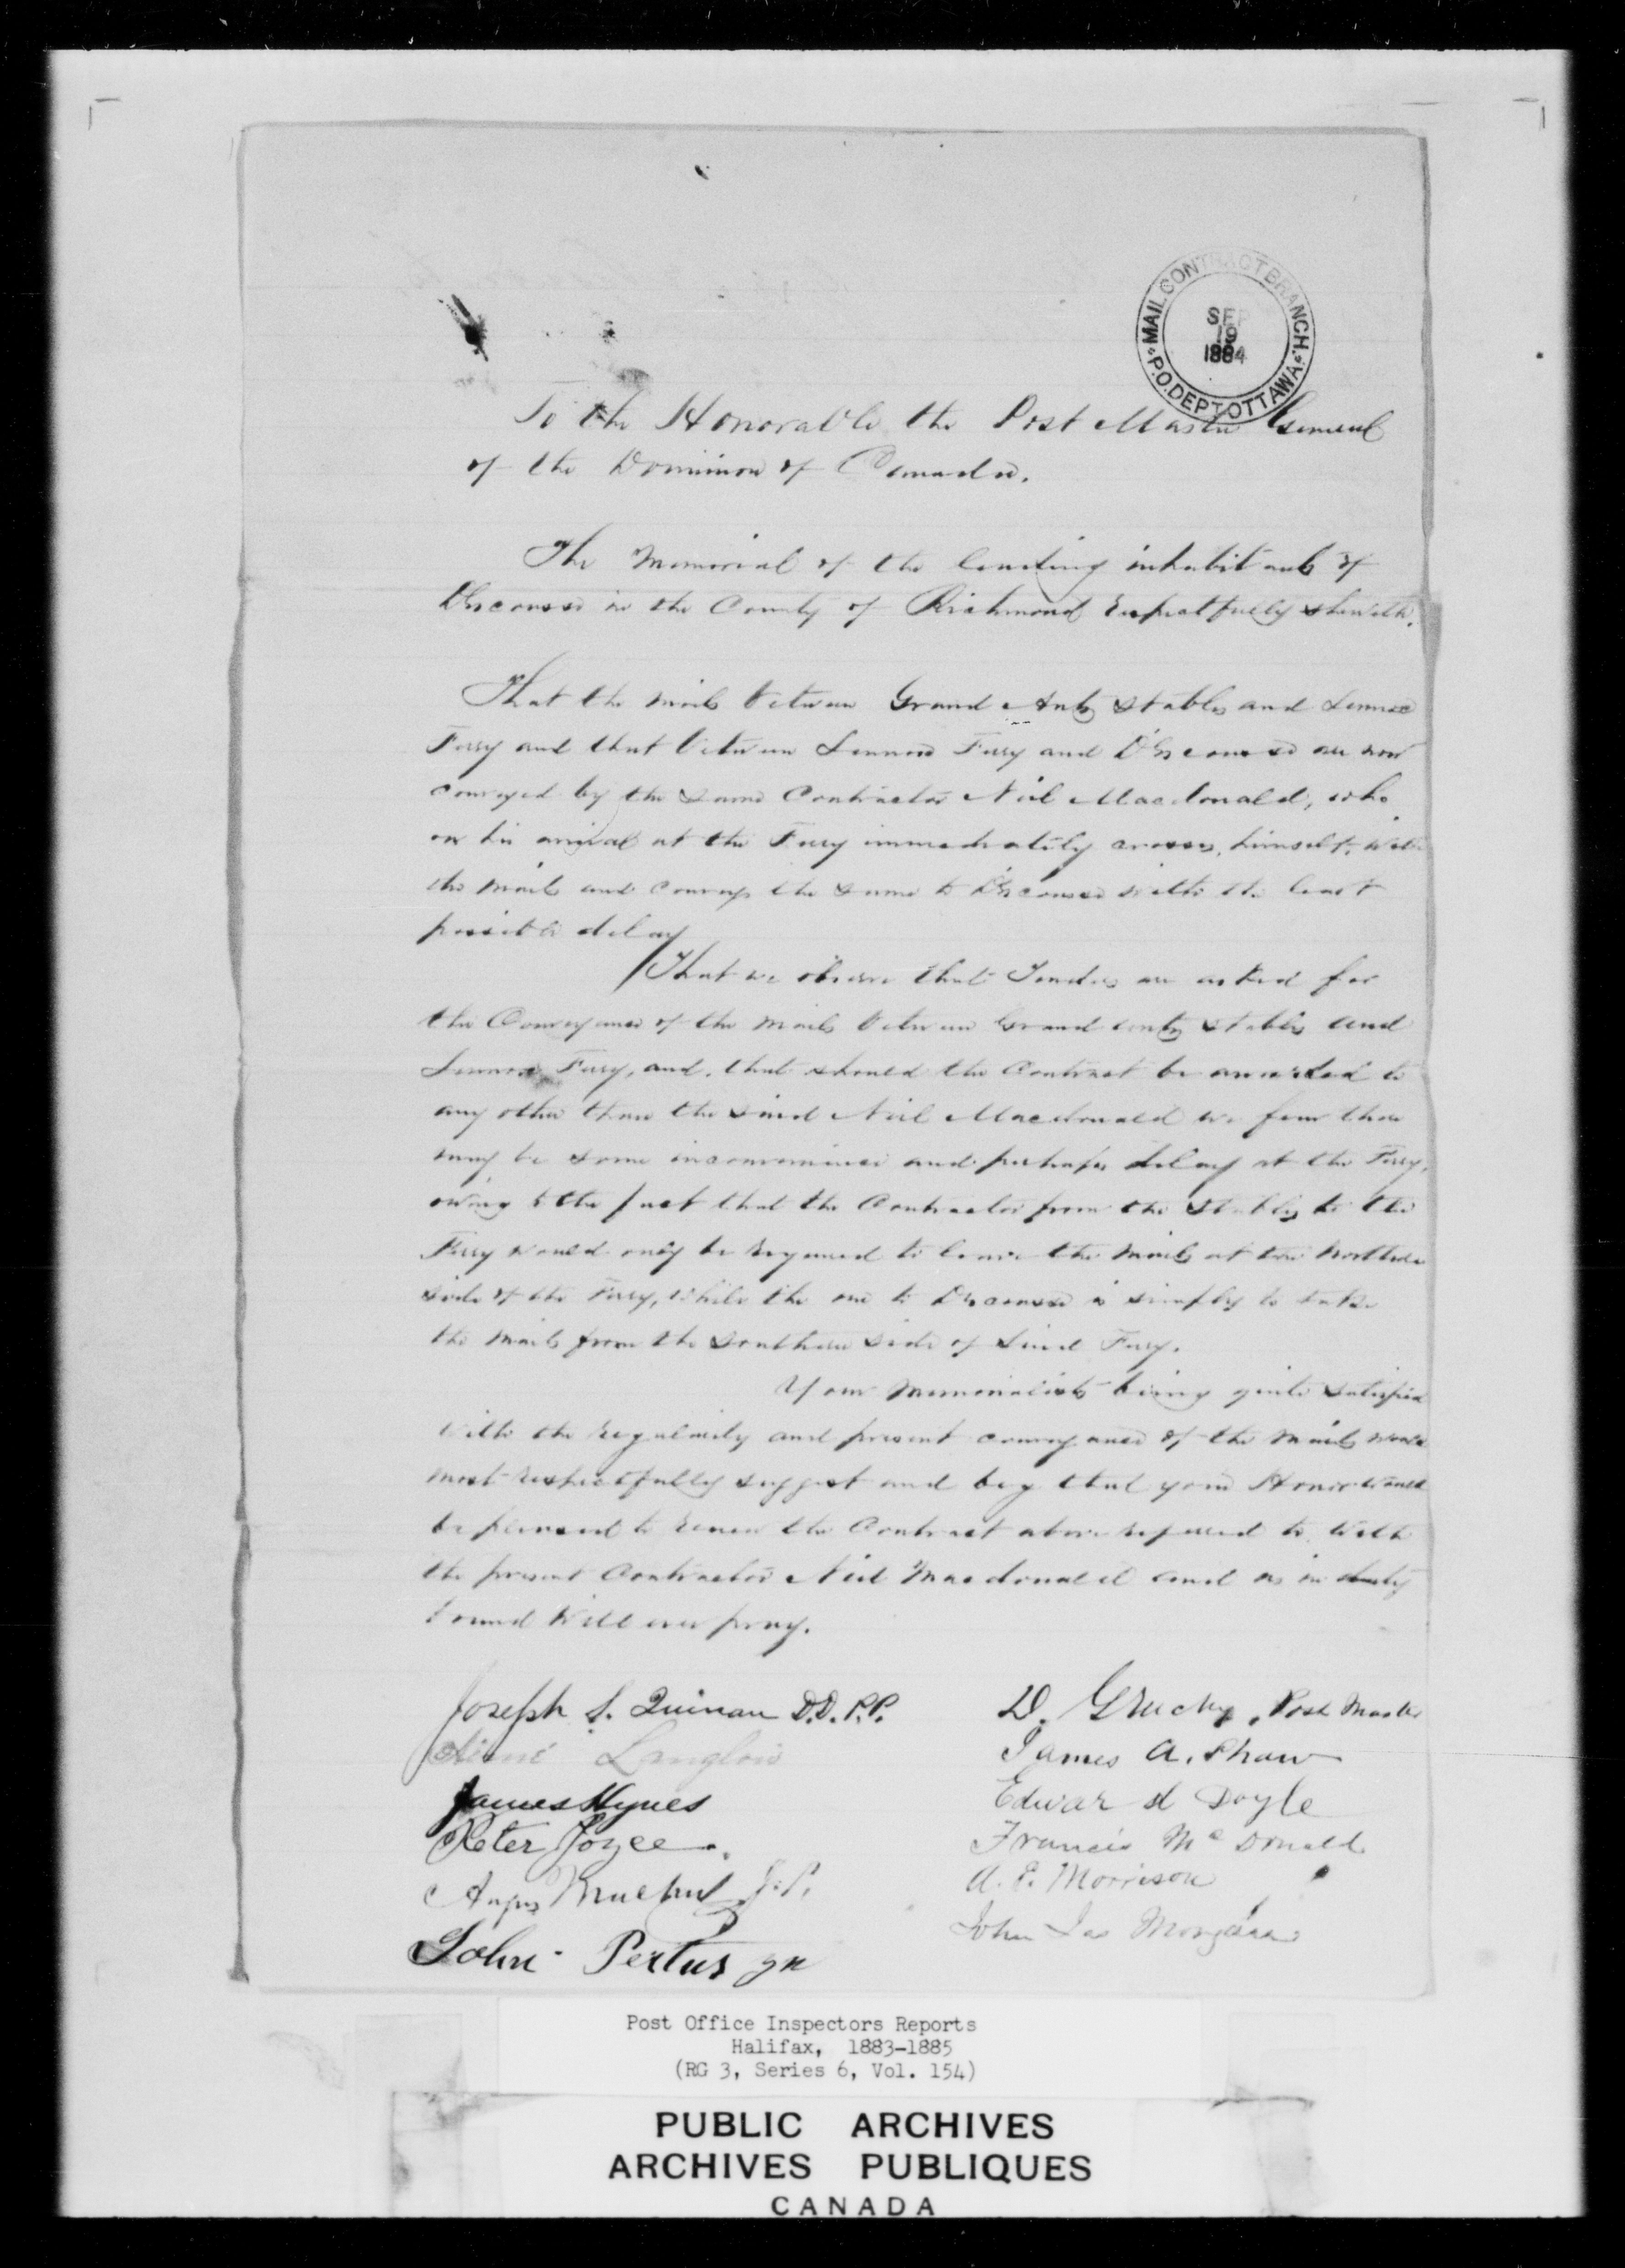 MAIL CONTRACT BRANCH.
P.O. DEPT OTTAWA.
SEP
19
1884
To the Honorable the Post Master General
of the Dominion of Canada.
The Memorial of the leading inhabitants of
D'Escousse in the County of Richmond respectfully sheweth.
That the mails between Grand Ants Stables and Lennox
Ferry and that between Lennox Ferry and D'Escousse are now
conveyed by the same Contractor Neil Macdonald, who
on his arrival at the Ferry immediately crosses, himself, with
the mails and conveys the same to D'Escousse with the least
possible delay
That we observe that Tenders are asked for
the Conveyance of the mails between Grand Stables and
Lennox Ferry, and, that should the Contract be awarded to
any other than the said Neil Macdonald we fear there
may be some inconvenience and perhaps delay at the Ferry,
owing to the fact that the Contractor from the Stables to the
Ferry would only be required to leave the mails at the northern
side of the Ferry, while the one to D'Escousse is simply to take
the mails from the southern side of said Ferry.
Your memorialists being quite satisfied
with the regularity and present conveyance of the mails would
most respectfully suggest and beg that your Honor would
be pleased to renew the Contract above referred to with
the present Contractor Neil Macdonald and as in duty
bound will ever pray.
Joseph S. Quinan D.D. P.P.
Langlois
James Hynes
Peter Joyce.
Angus J.P.
John Pertus jn
D. Gruchy, Post Master
James A. Shaw
Edward Doyle
Francis Mc Donald
A. E. Morrison
John Jas
Post Office Inspectors Reports
Halifax, 1883-1885
(RG 3, Series 6, Vol. 154)
PUBLIC ARCHIVES
ARCHIVES PUBLIQUES
CANADA